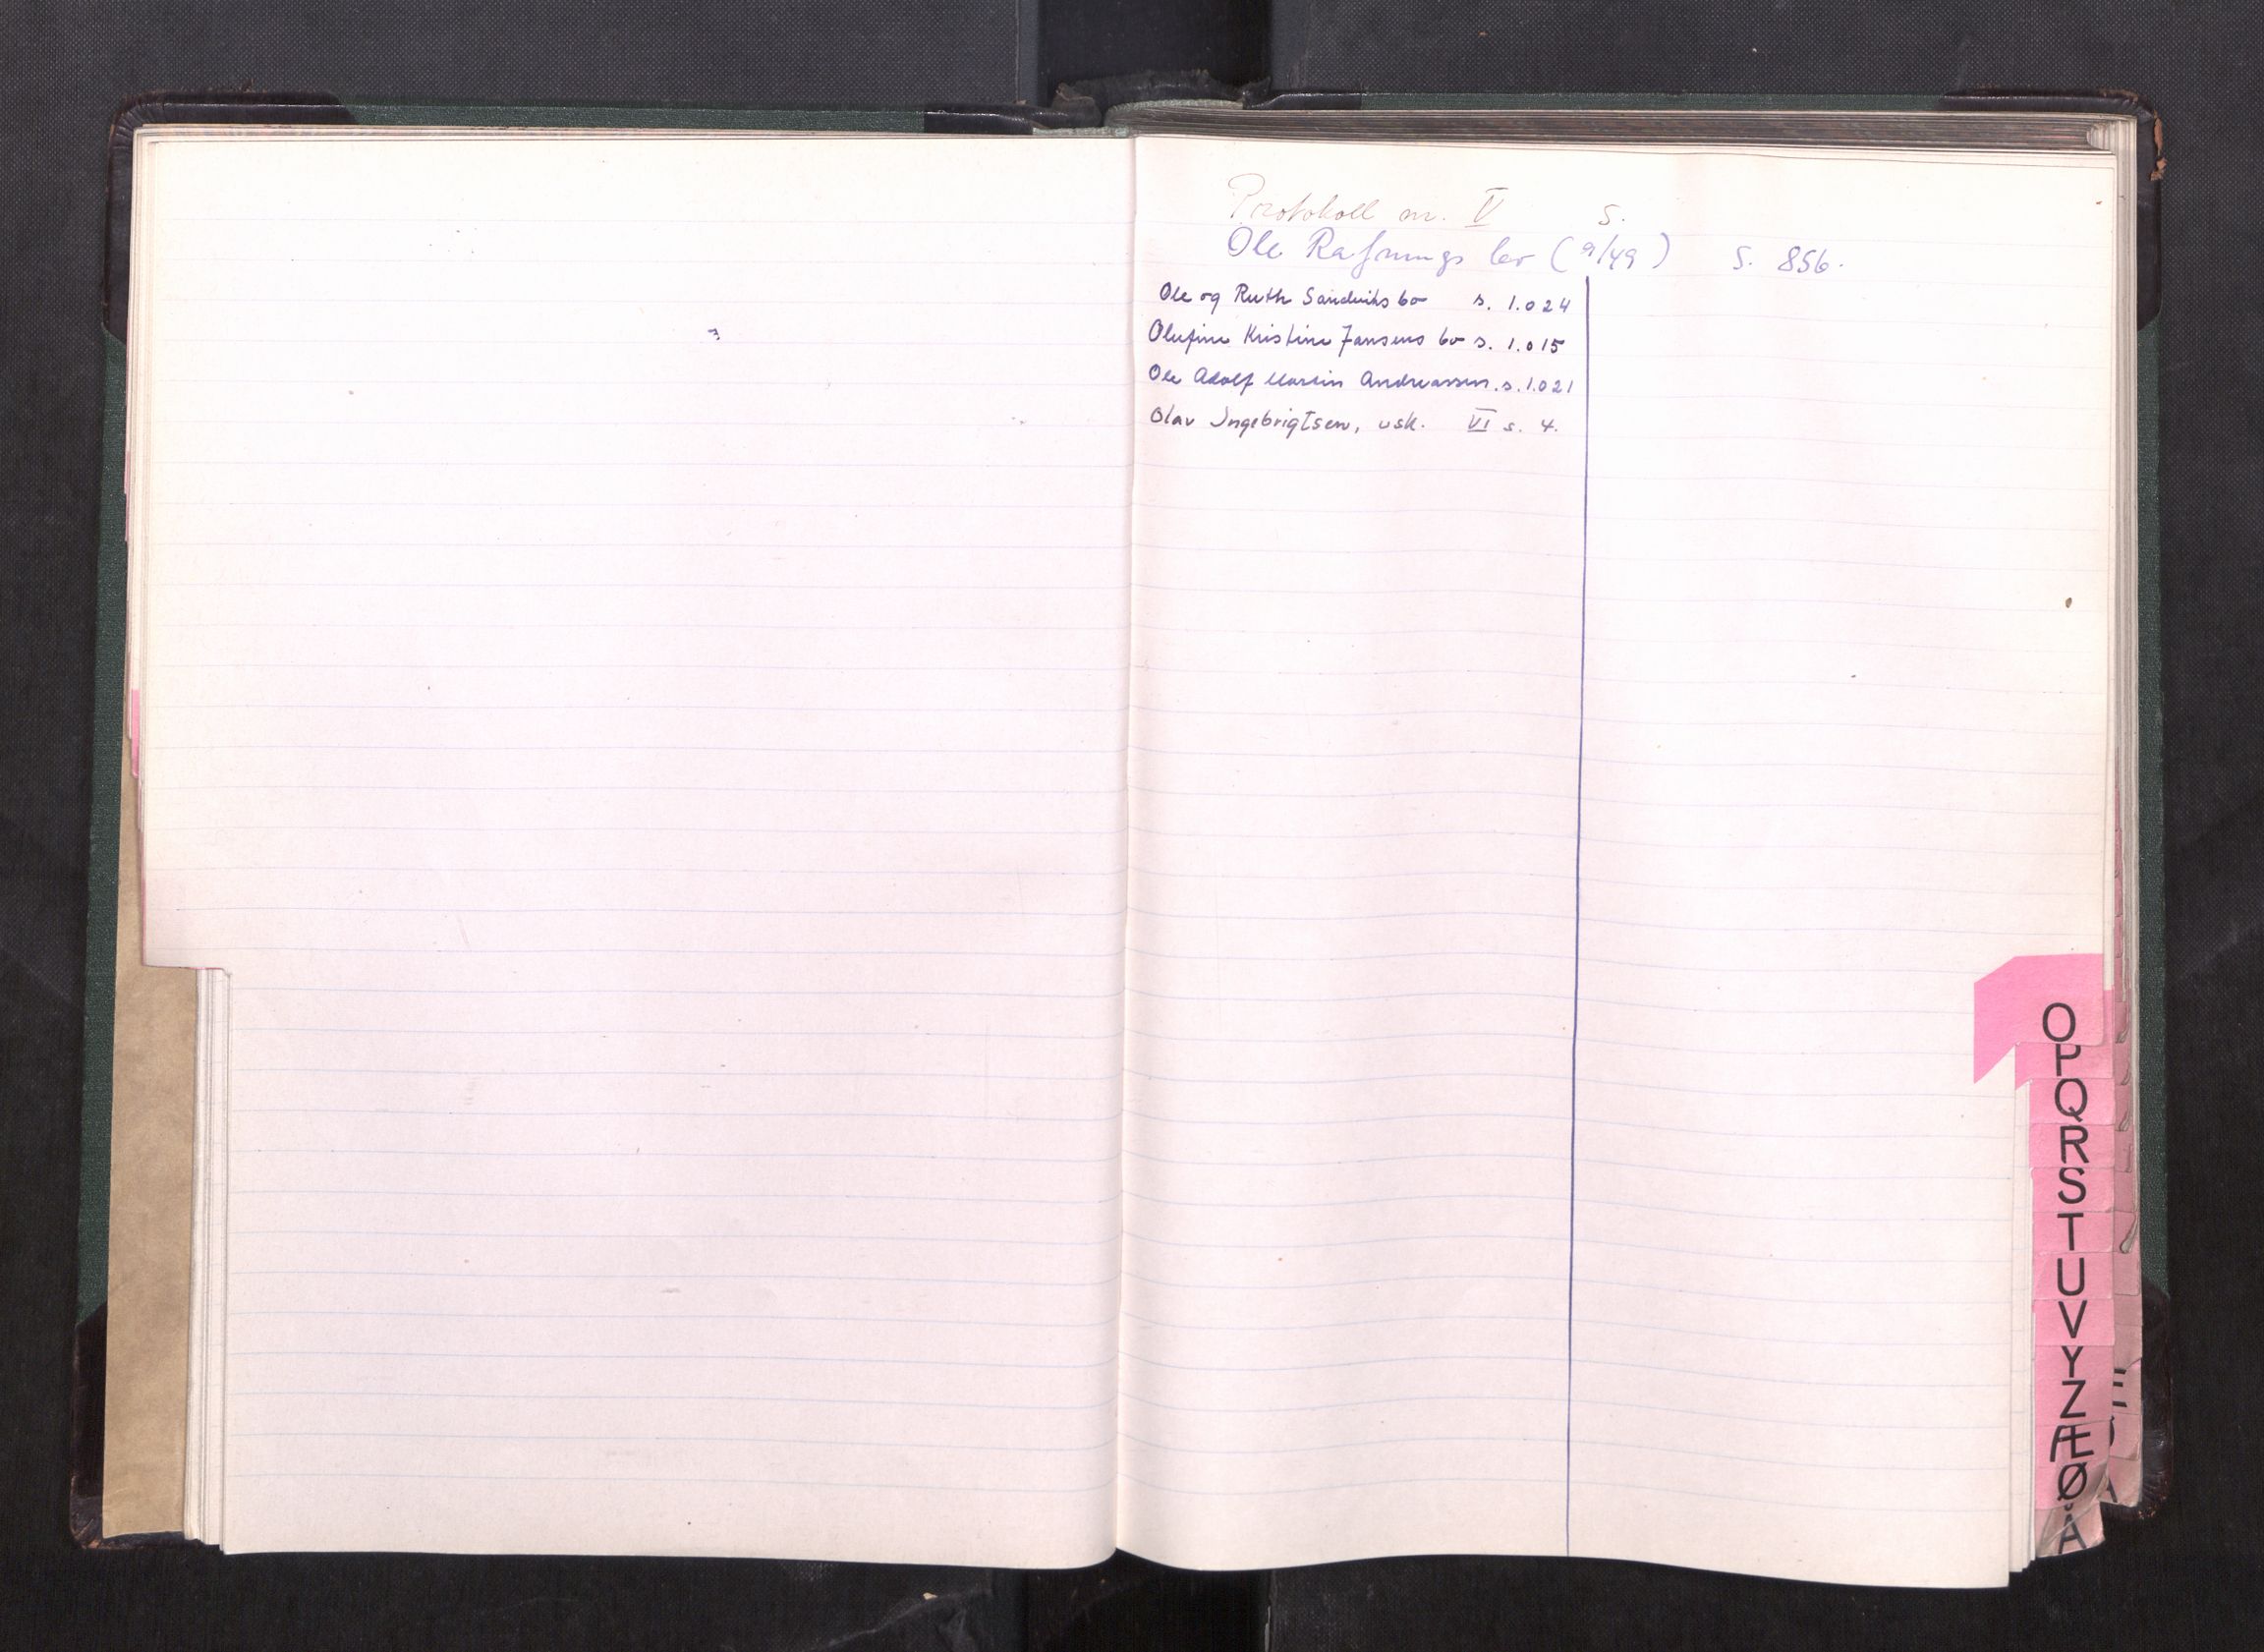 Protokoll nr. V s.
Ole Rafnungs bo (9/49) S. 856.
Ole og Ruth Sandviks bo s. 1.024
Olufine Kristine Jansens bo s. 1.015
Ole Adolf Martin Andreassen. s. 1.021
Olav Ingebrigtsen, usk. VI s. 4.
O
P
Q
R
S
T
U
V
Y
Z
Æ
Ø
Å